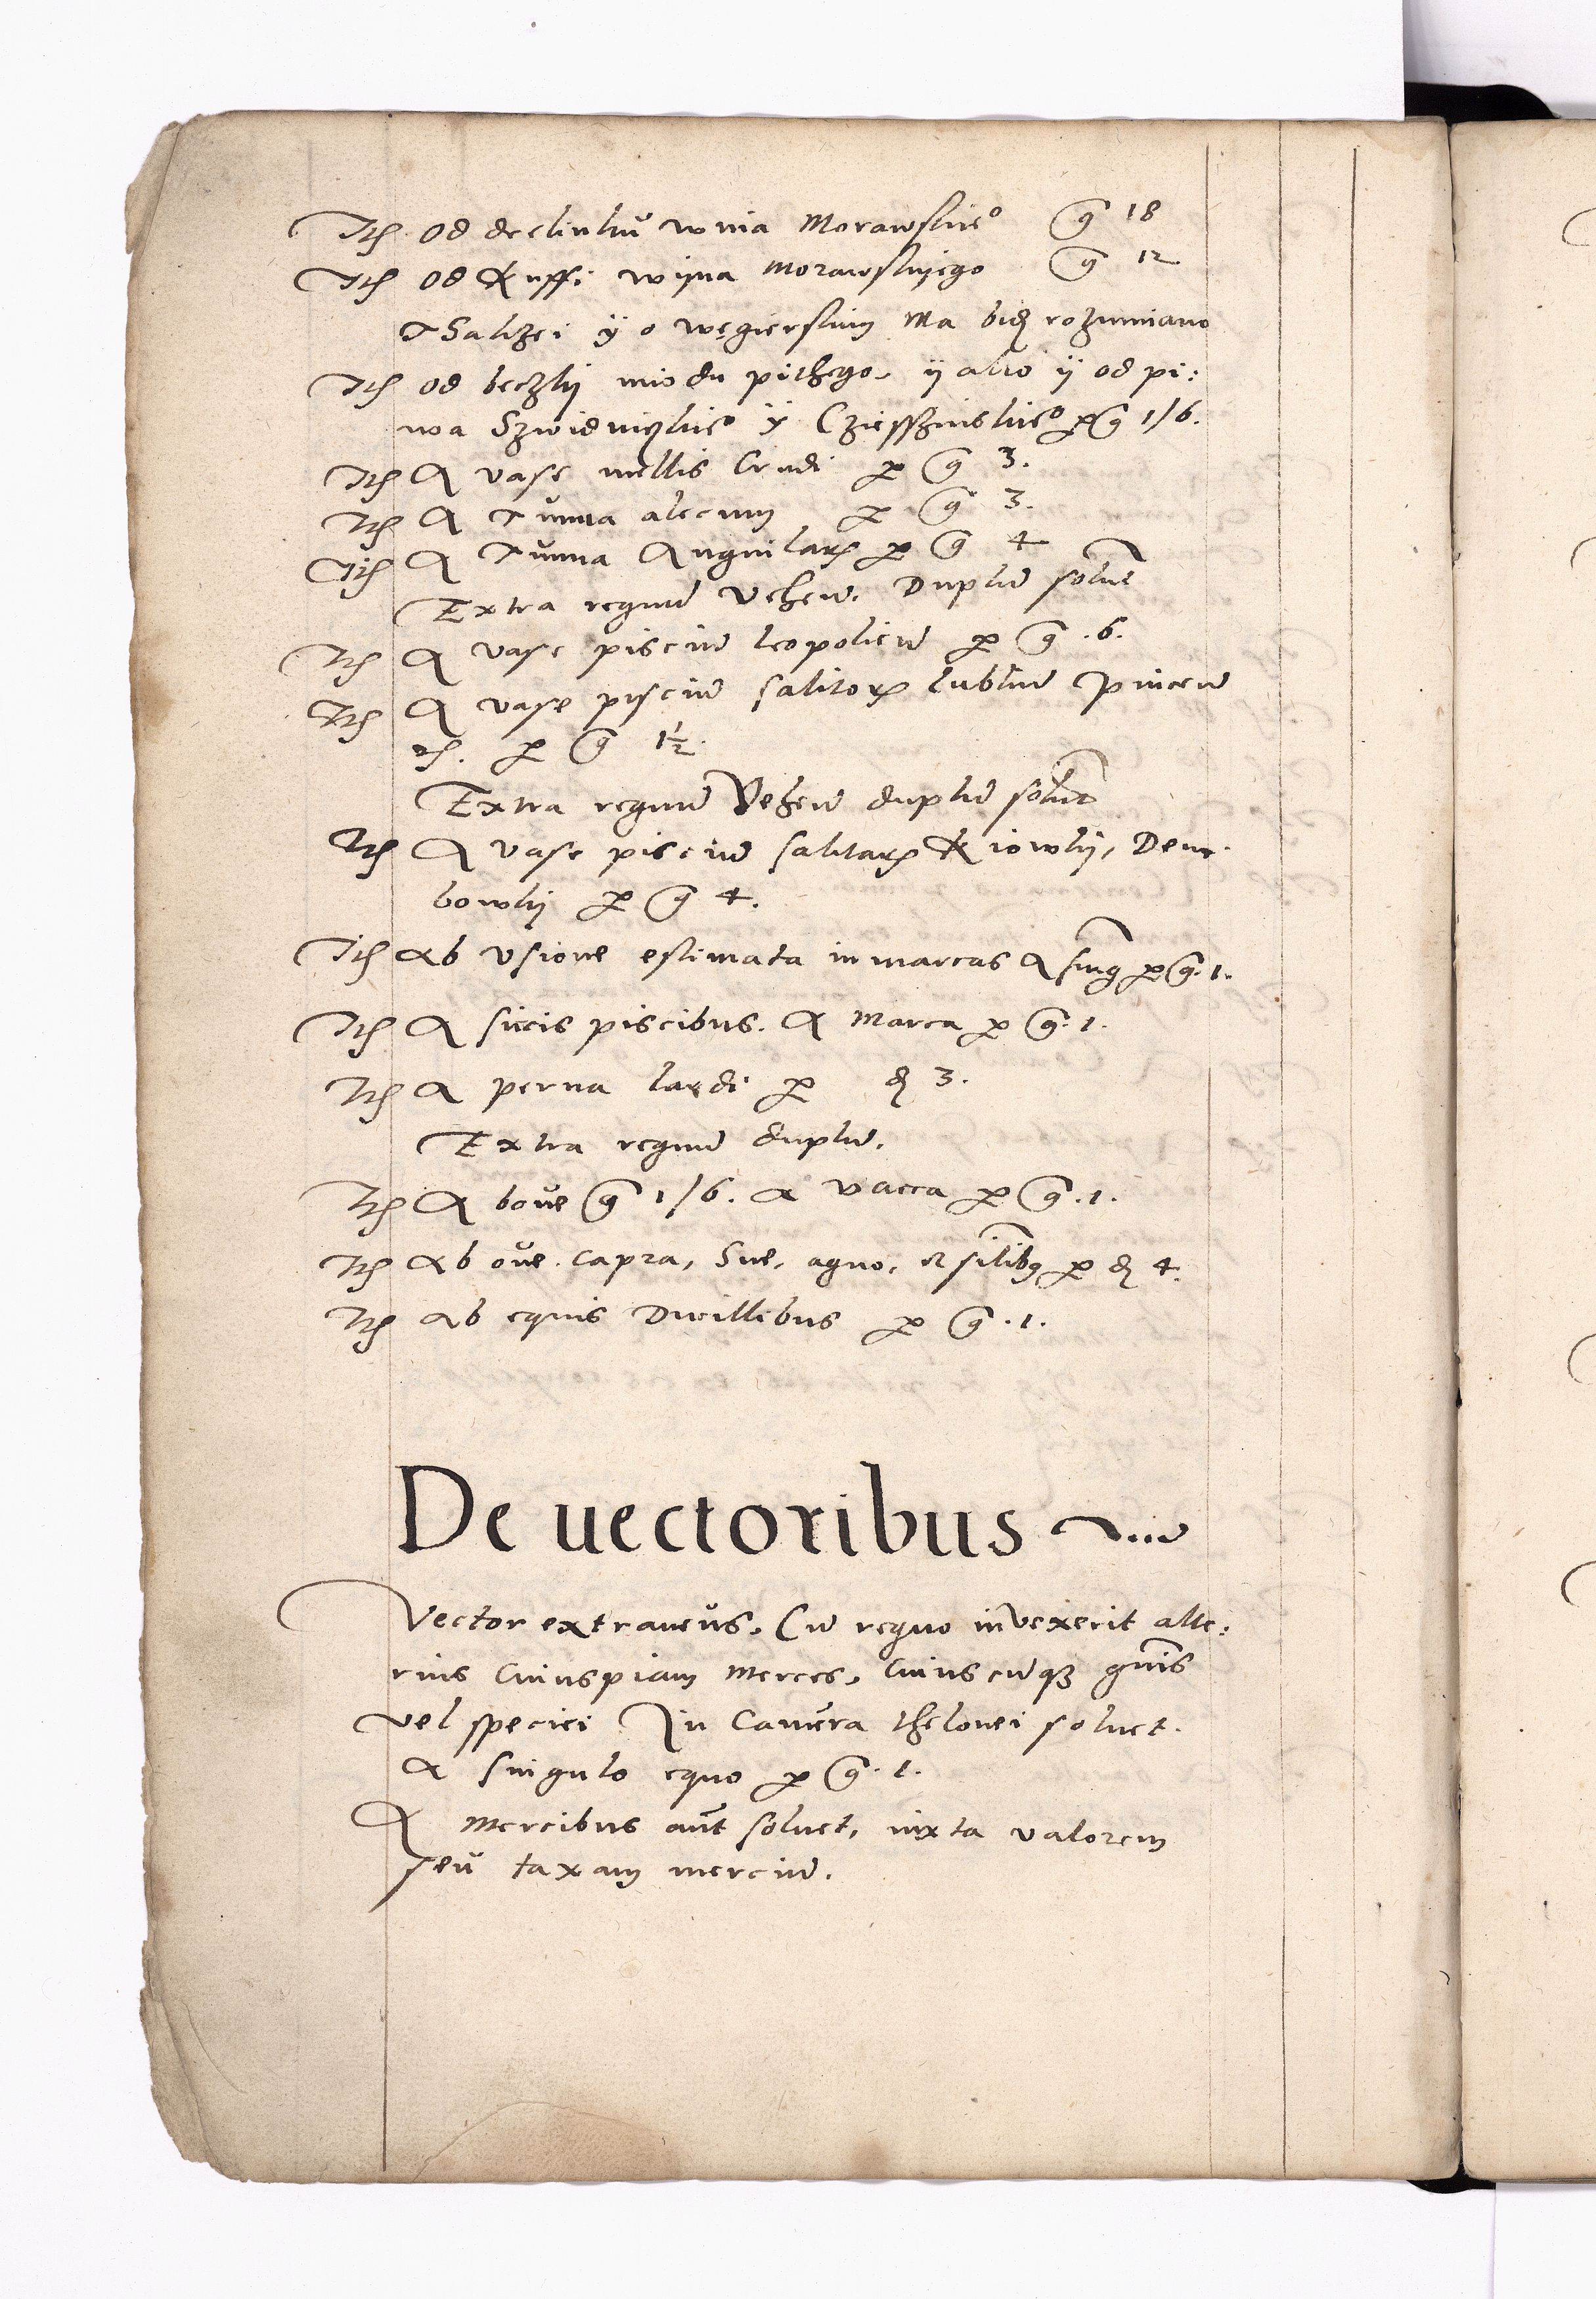 Itē od dreilinku wina Morawskie° gͦ 18
Itē od Kuffi wijna morawskyiego gͦ 12
Takze i ÿ o węgierskim Ma bidź rozumiano
Itē od beczkij miodu pithego, ÿ albo ÿ od pi:
wa Szwidniczkie° ÿ Cziesszinskie° p gͦ 1/6.
Itē A vase mellis Crudi p gͦ 3.
Itē A Tunna alecum p gͦ 3.
Itē A Tunna Anguilarꝝ p gͦ 4
Extra regnū vehen. Duplū soluet
Itē A vase pisciū leopolien p gͦ .6.
Itē A vase pisciū salitorꝝ lublin Pincen
etc. p gͦ 1½.
Extra regnū Vehen duplū soluet
Itē A vase pisciū salitarꝝ Kiowkij, Dem-
bowkij p gͦ 4.
Itē Ab Vsione estimata in marcas A sing p gͦ. 1.
Itē A siccis piscibus. A Marca p gͦ. 1.
Itē A perna lardi p đ 3.
Extra regnū duplū.
Itē A boue gͦ 1/6. A vacca p gͦ .1.
Itē Ab oue. Capra, Sue, agno, et silibꝫ p đ 4.
Itē Ab equis Ducillibus p gͦ .1.
De uectoribus
Vector extraneus, Cū regno inVexerit alte:
rius Cuiuspiam Merces, Cuiuscūqꝫ gnis
vel speciei In Camera thelonei soluet.
A singulo equo p gͦ. 1.
A Mercibus aut soluet, iuxta valorem
seu taxam merciū.